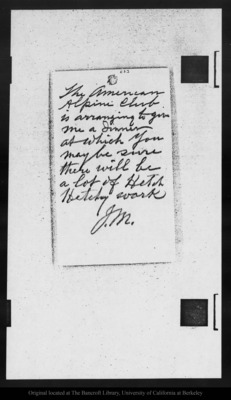 The American
Alpine Club
is arranging to give
me a dinner
at which you
may be sure
there will be
a lot of Hetch
Hetchy work
J.M.
Original located at The Bancroft Library, University of California at Berkeley